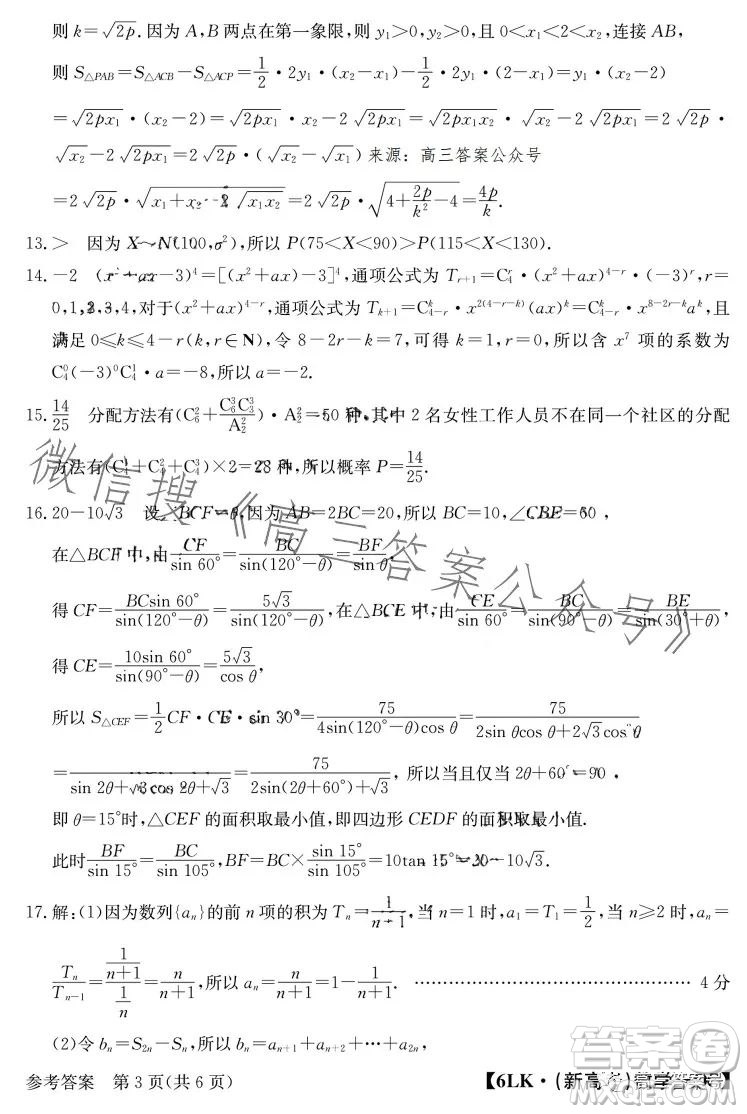 则 k=√(2p).因为 A,B 两点在第一象限,则 y₁>0,y₂>0,且 0<x₁<2<x₂,连接 AB,
则 S△PAB=S△ACB−S△ACP=1/2·2y₁·(x₂−x₁)−1/2·2y₁·(2−x₁)=y₁·(x₂−2)
=√(2px₁)·(x₂−2)=√(2px₁)·x₂−2√(2px₁)=√(2px₁x₂)·√x₂−2√(2p)·
√x₂−2√(2p)·(√x₂−√x₁) 来源:高三答案公众号
=2√(2p)·√(x₁+x₂−2√(x₁x₂))=2√(2p)·√(4+2p/k²−4)=4p/k.
13.> 因为 X~N(100,σ²),所以 P(75<X<90)>P(115<X<130).
14.−2 (x²+ax−3)⁴=[(x²+ax)−3]⁴,通项公式为 Tᵣ₊₁=C₄ʳ·(x²+ax)⁴⁻ʳ·(−3)ʳ,r=
0,1,2,3,4,对于(x²+ax)⁴⁻ʳ,通项公式为 Tₖ₊₁=C₄₋ᵣᵏ·x^(2(4−r−k))(ax)ᵏ=C₄₋ᵣᵏ·x^(8−2r−k)aᵏ,且
满足 0≤k≤4−r(k,r∈N),令 8−2r−k=7,可得 k=1,r=0,所以含 x⁷ 项的系数为
C₄⁰(−3)⁰C₄¹·a=−8,所以 a=−2.
15.14/25 分配方法有(C₆²+C₆³C₃³/A₂²)·A₂²=50 种,其中 2 名女性工作人员不在同一个社区的分配
方法有(C₄¹+C₄²+C₄³)×2=28 种,所以概率 P=14/25.
16.20−10√3 设∠BCF=θ,因为 AB=2BC=20,所以 BC=10,∠CBE=60°,
在△BCF 中,由 CF/sin 60°=BC/sin(120°−θ)=BF/sin θ,
得 CF=BCsin 60°/sin(120°−θ)=5√3/sin(120°−θ),在△BCE 中,由 CE/sin 60°=BC/sin(90°−θ)=BE/sin(30°+θ),
得 CE=10sin 60°/sin(90°−θ)=5√3/cos θ,
所以 S△CEF=1/2CF·CE·sin 30°=75/(4sin(120°−θ)cos θ)=75/(2sin θcos θ+2√3cos²θ)
=75/(sin 2θ+√3cos 2θ+√3)=75/(2sin(2θ+60°)+√3),所以当且仅当 2θ+60°=90°,
即 θ=15°时,△CEF 的面积取最小值,即四边形 CEDF 的面积取最小值.
此时 BF/sin 15°=BC/sin 105°,BF=BC×sin 15°/sin 105°=10tan 15°=20−10√3.
17.解:(1)因为数列{aₙ}的前 n 项的积为 Tₙ=1/(n+1),当 n=1 时,a₁=T₁=1/2,当 n≥2 时,aₙ=
Tₙ/Tₙ₋₁=(1/(n+1))/(1/n)=n/(n+1),所以 aₙ=n/(n+1)=1−1/(n+1). ………………………………………… 4 分
(2)令 bₙ=S₂ₙ−Sₙ,所以 bₙ=aₙ₊₁+aₙ₊₂+…+a₂ₙ,
参考答案 第 3 页(共 6 页)
【6LK·(新高考)数学
微信搜《高三答案公众号》
答案圈